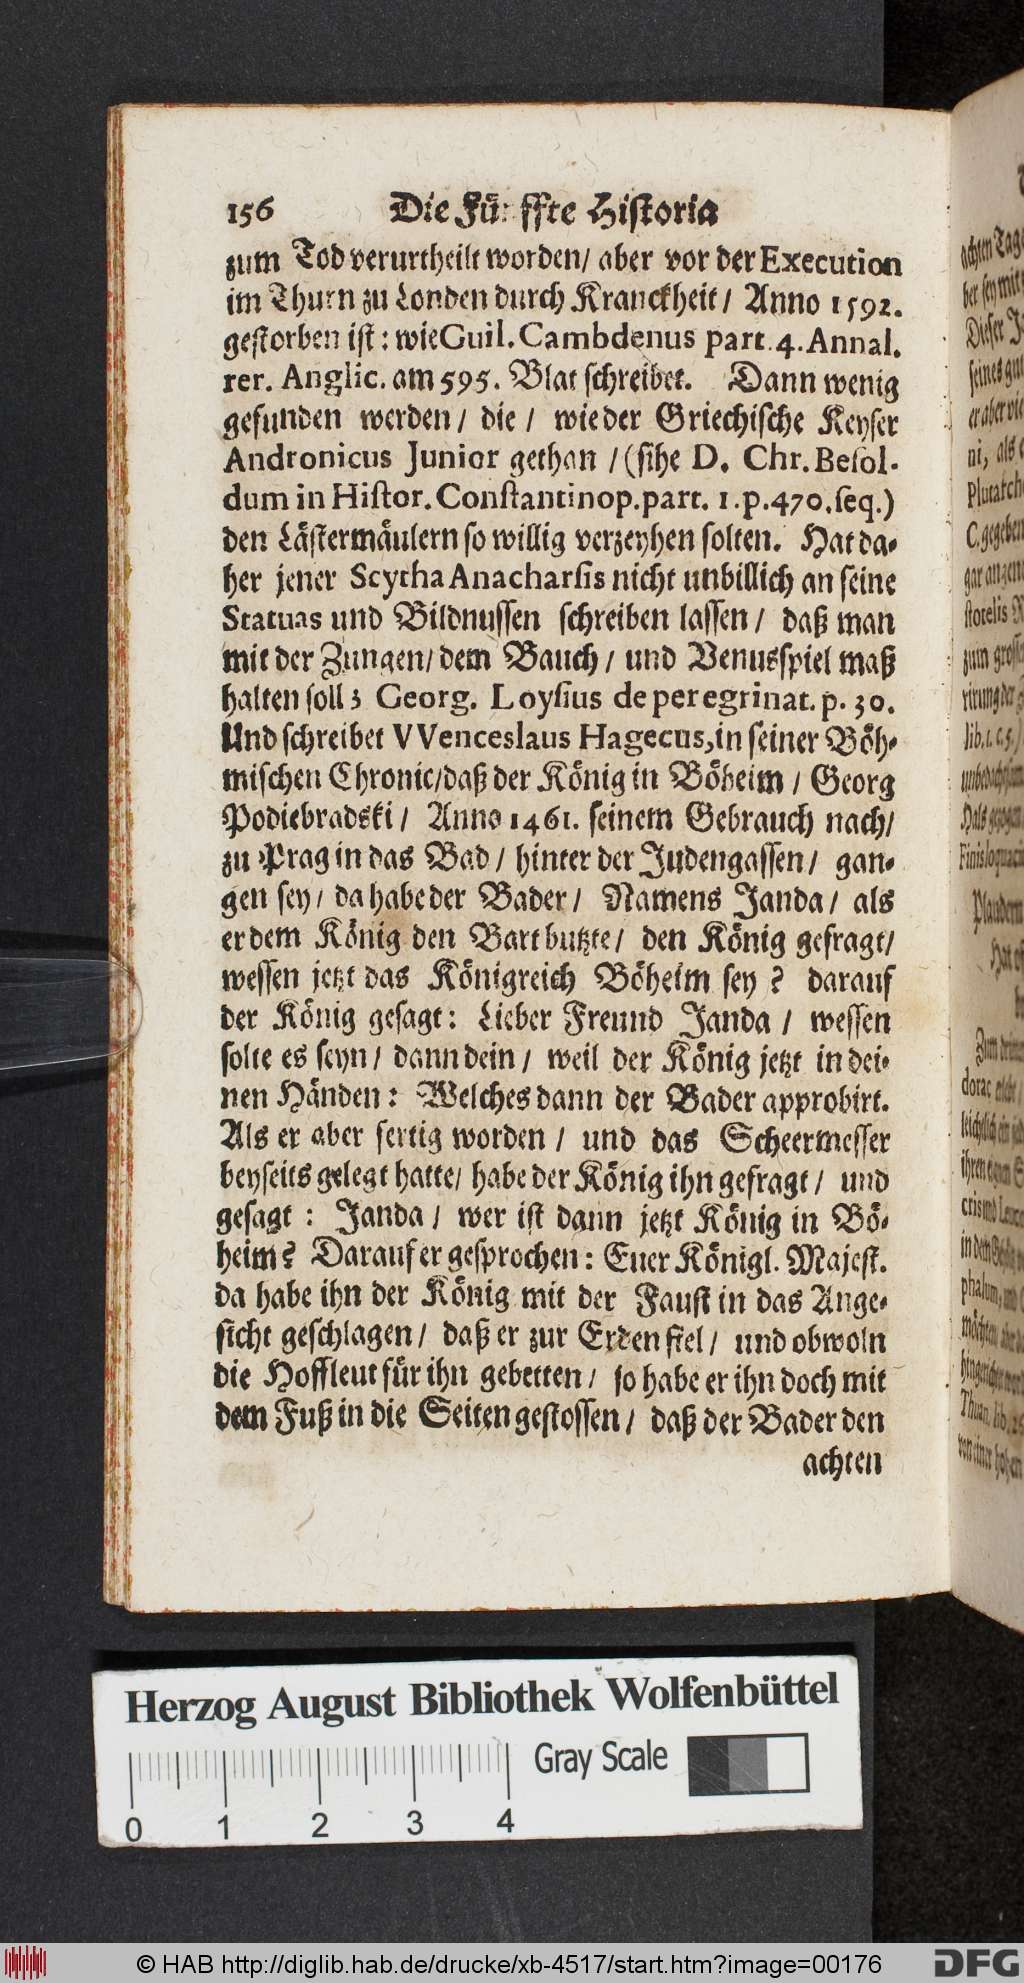 156 Die Fünffte Historia
zum Tod verurtheilt worden/ aber vor der Execution
im Thurn zu Londen durch Kranckheit/ Anno 1592.
gestorben ist: wie Guil. Cambdenus part. 4. Annal.
rer. Anglic. am 595. Blat schreibet. Dann wenig
gefunden werden/ die/ wie der Griechische Keyser
Andronicus Junior gethan/ (sihe D. Chr. Besol-
dum in Histor. Constantinop. part. 1. p. 470. seq.)
den Lästermäulern so willig verzeyhen solten. Hat da-
her jener Scytha Anacharsis nicht unbillich an seine
Statuas und Bildnussen schreiben lassen/ daß man
mit der Zungen/ dem Bauch/ und Venusspiel maß
halten soll; Georg. Loysius de peregrinat. p. 30.
Und schreibet VVenceslaus Hagecus, in seiner Böh-
mischen Chronic/ daß der König in Böheim/ Georg
Podiebradski/ Anno 1461. seinem Gebrauch nach/
zu Prag in das Bad/ hinter der Judengassen/ gan-
gen sey/ da habe der Bader/ Namens Janda/ als
er dem König den Bart butzte/ den König gefragt/
wessen jetzt das Königreich Böheim sey? darauf
der König gesagt: Lieber Freund Janda/ wessen
solte es seyn/ dann dein/ weil der König jetzt in dei-
nen Händen: Welches dann der Bader approbirt.
Als er aber fertig worden/ und das Scheermesser
beyseits gelegt hatte/ habe der König ihn gefragt/ und
gesagt: Janda/ wer ist dann jetzt König in Bö-
heim? Darauf er gesprochen: Euer Königl. Majest.
da habe ihn der König mit der Faust in das Ange-
sicht geschlagen/ daß er zur Erden fiel/ und obwoln
die Hoffleut für ihn gebetten/ so habe er ihn doch mit
dem Fuß in die Seiten gestossen/ daß der Bader den
achten
Herzog August Bibliothek Wolfenbüttel
Gray Scale
0 1 2 3 4
© HAB http://diglib.hab.de/drucke/xb-4517/start.htm?image=00176
DFG